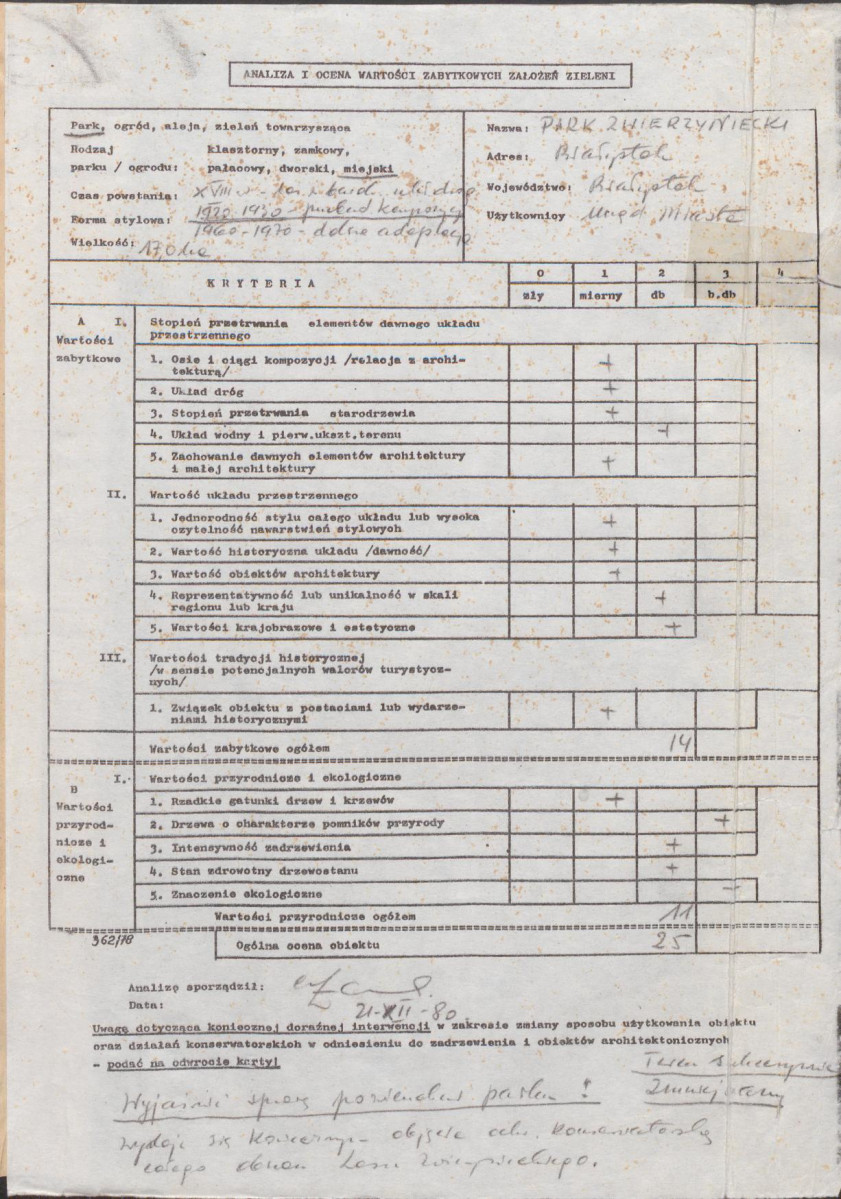 ANALIZA I OCENA WARTOŚCI ZABYTKOWYCH ZAŁOŻEŃ ZIELENI
Park, ogród, aleja, zieleń towarzysząca
Rodzaj klasztorny, zamkowy,
parku / ogrodu: pałacowy, dworski, miejski
Czas powstania: XVIII w -
Forma stylowa: 1920 1930 -
1960-1970 - dalsze adaptacje
Wielkość: 17,0 ha
Nazwa: PARK ZWIERZYNIECKI
Adres: Białystok
Województwo: Białystok
Użytkownicy Urząd Miasta
KRYTERIA
0 1 2 3 4
zły mierny db b.db
A I. Stopień przetrwania elementów dawnego układu
Wartości przestrzennego
zabytkowe 1. Osie i ciągi kompozycji /relacja z archi-
tekturą/ +
2. Układ dróg +
3. Stopień przetrwania starodrzewia +
4. Układ wodny i pierw.ukszt.terenu +
5. Zachowanie dawnych elementów architektury
i małej architektury +
II. Wartość układu przestrzennego
1. Jednorodność stylu całego układu lub wysoka
czytelność nawarstwień stylowych +
2. Wartość historyczna układu /dawność/ +
3. Wartość obiektów architektury +
4. Reprezentatywność lub unikalność w skali
regionu lub kraju +
5. Wartości krajobrazowe i estetyczne +
III. Wartości tradycji historycznej
/w sensie potencjalnych walorów turystycz-
nych/
1. Związek obiektu z postaciami lub wydarze-
niami historycznymi +
Wartości zabytkowe ogółem 14
B I. Wartości przyrodnicze i ekologiczne
Wartości 1. Rzadkie gatunki drzew i krzewów +
przyrod- 2. Drzewa o charakterze pomników przyrody +
nicze i 3. Intensywność zadrzewienia +
ekologi- 4. Stan zdrowotny drzewostanu +
czne 5. Znaczenie ekologiczne -
Wartości przyrodnicze ogółem 11
362/78
Ogólna ocena obiektu 25
Analizę sporządził:
Data: 21-XII-80
Uwagę dotycząca koniecznej doraźnej interwencji w zakresie zmiany sposobu użytkowania obiektu
oraz działań konserwatorskich w odniesieniu do zadrzewienia i obiektów architektonicznych
- podać na odwrocie karty!
Teren
Zmniejszony
Wyjaśnić sprawę parku !
wydaje się koniecznym objęcie ochr. konserwatorską
całego Lasu Zwierzynieckiego.